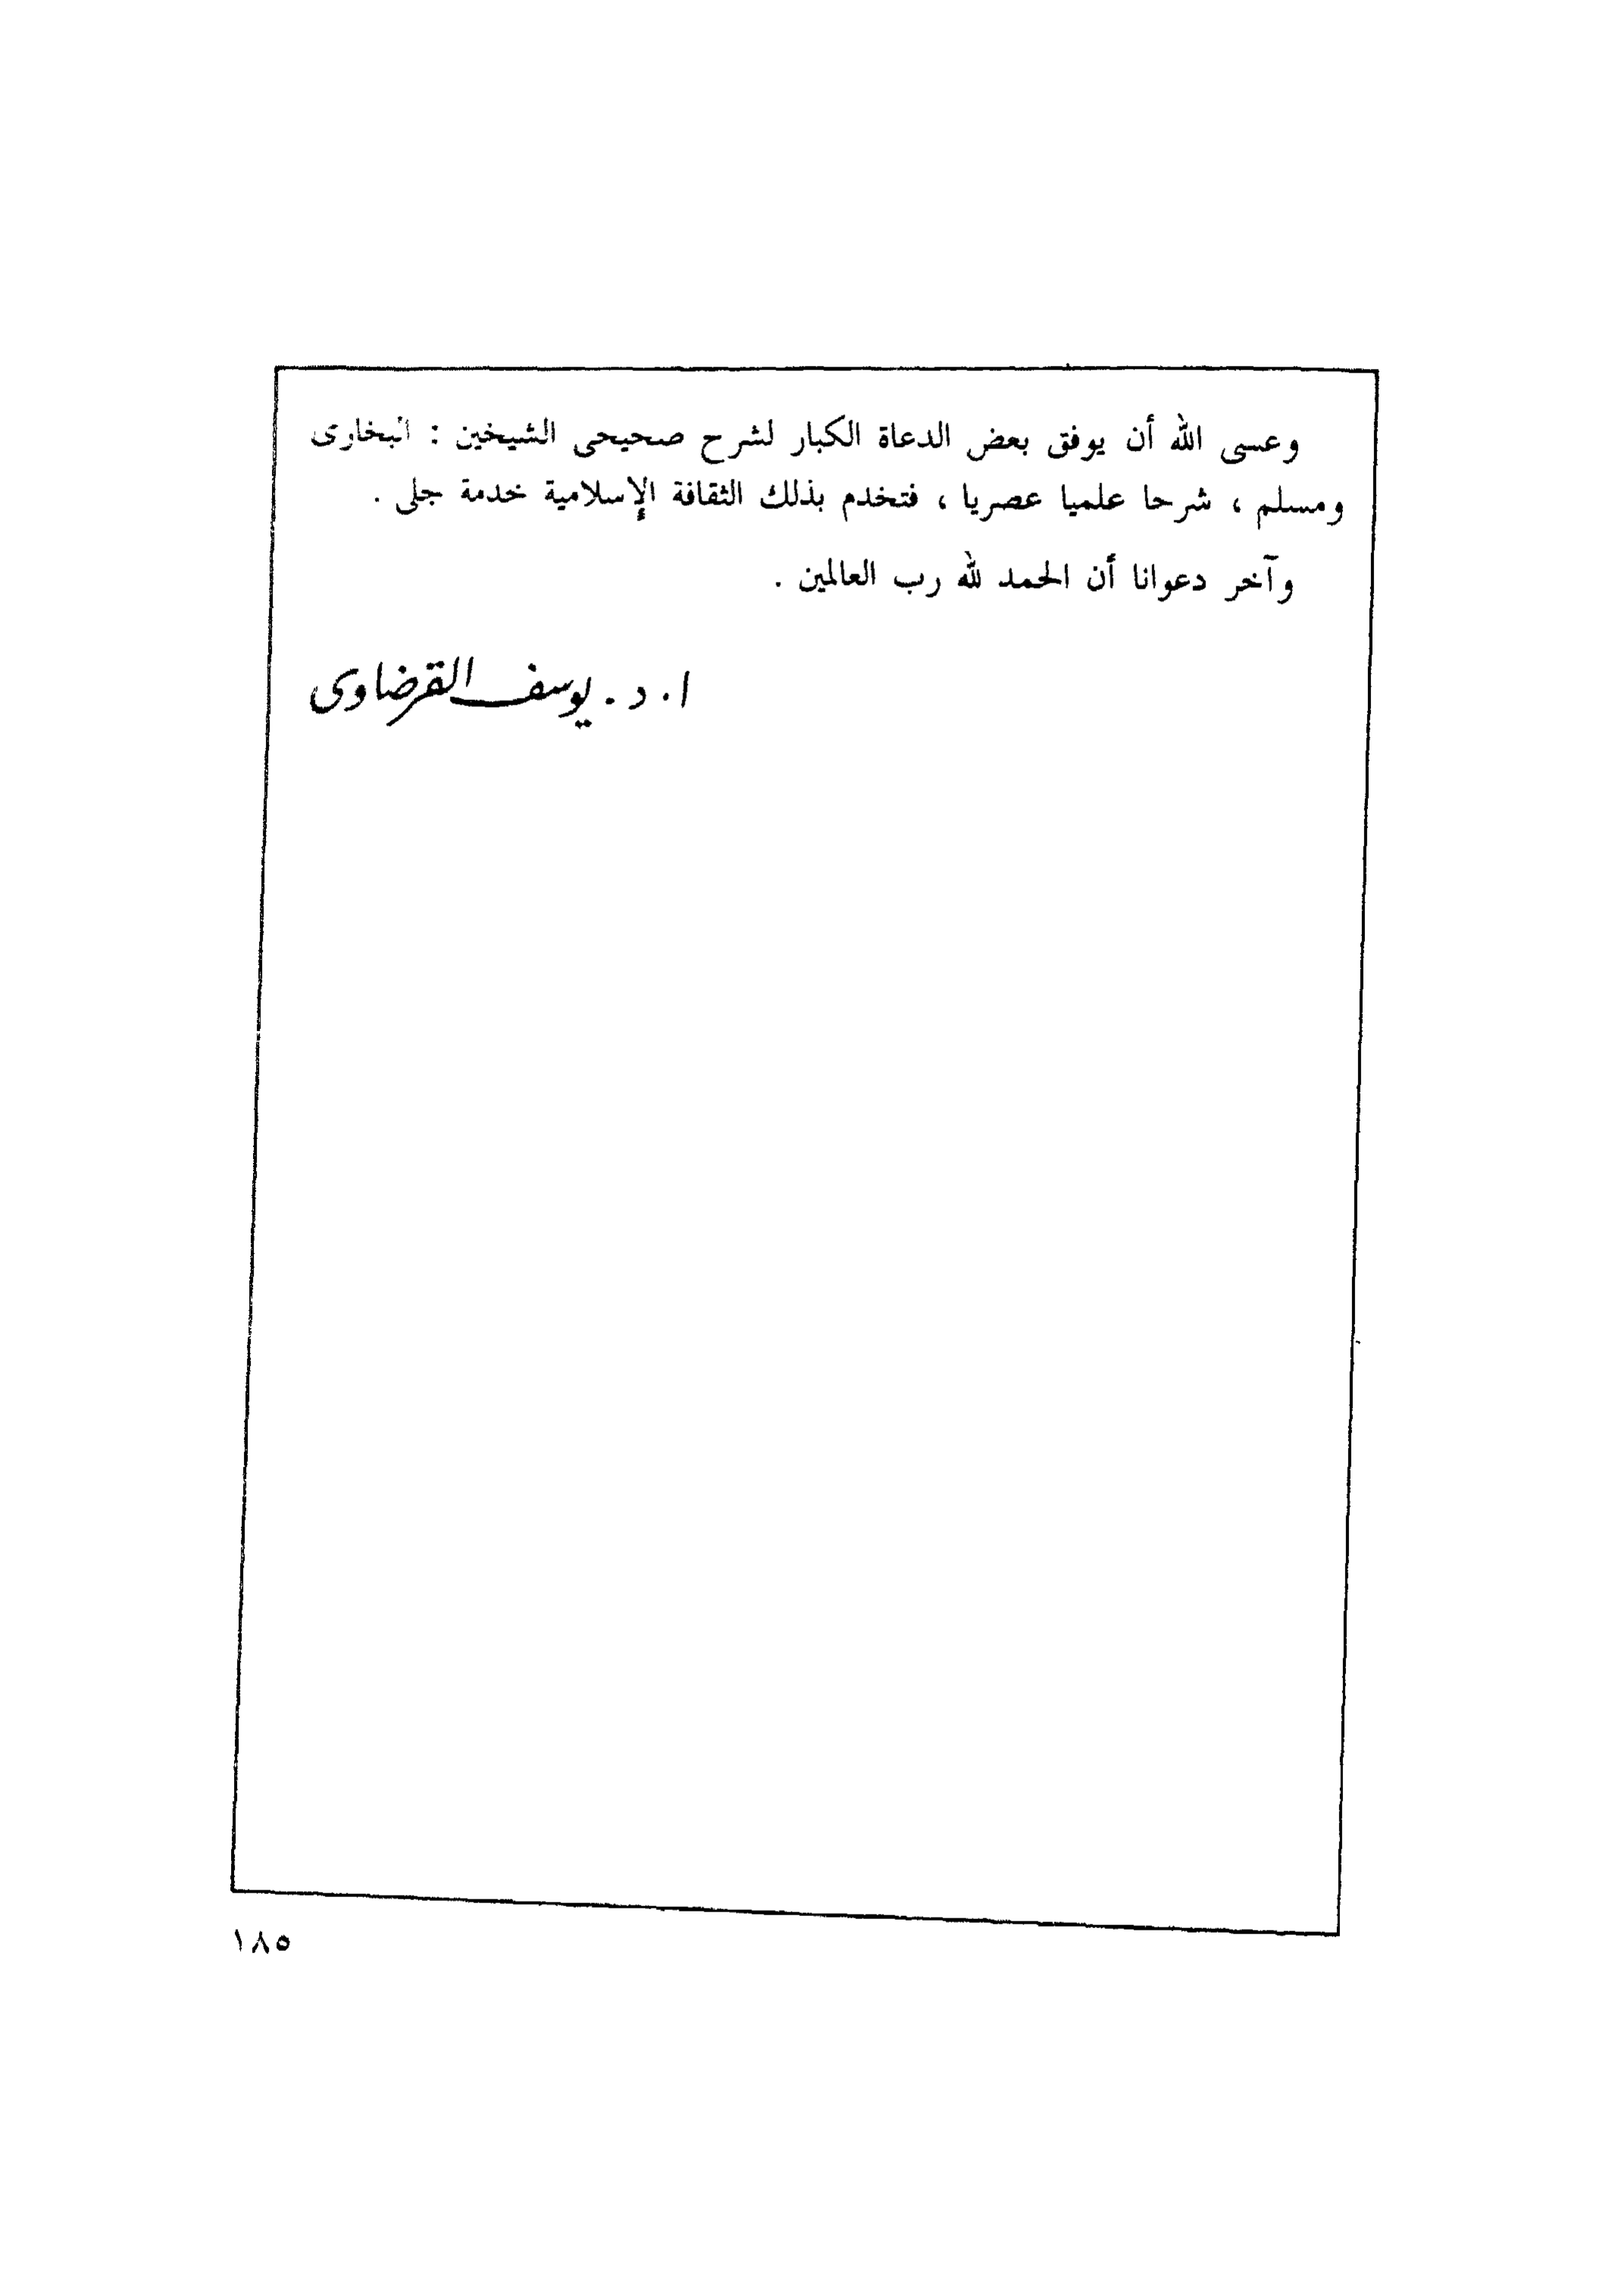 وعسى الله أن يوفق بعض الدعاة الكبار لشرح صحيحى الشيخين : البخارى
ومسلم ، شرحا علميا عصريا ، فتخدم بذلك الثقافة الإسلامية خدمة جلى .
وآخر دعوانا أن الحمد لله رب العالمين .
ا . د . يوسف القرضاوى
١٨٥